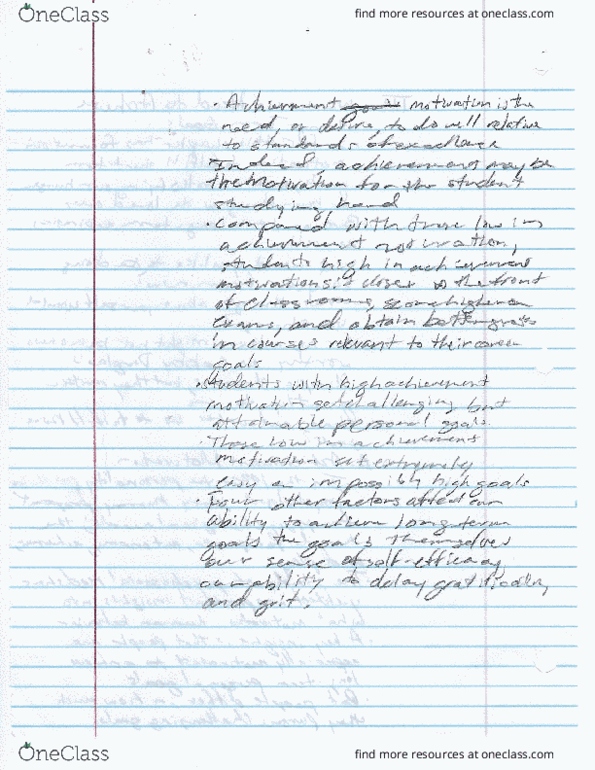 OneClass
find more resources at oneclass.com
• Achievement motivation is the
need or desire, to do well relative
to standards of excellence
• Indeed, achievement may be
the motivation for the student
studying hard
• Compared with those low in
achievement motivation,
students high in achievement
motivation sit closer to the front
of classrooms, score higher on
exams, and obtain better grades
in courses relevant to their career
goals
• Students with high achievement
motivation set challenging but
attainable personal goals.
• Those low in achievement
motivation set extremely
easy or impossibly high goals
• Four other factors affect our
ability to achieve long-term
goals the goals themselves
our sense of self-efficacy
our ability to delay gratification,
and grit.
OneClass
find more resources at oneclass.com